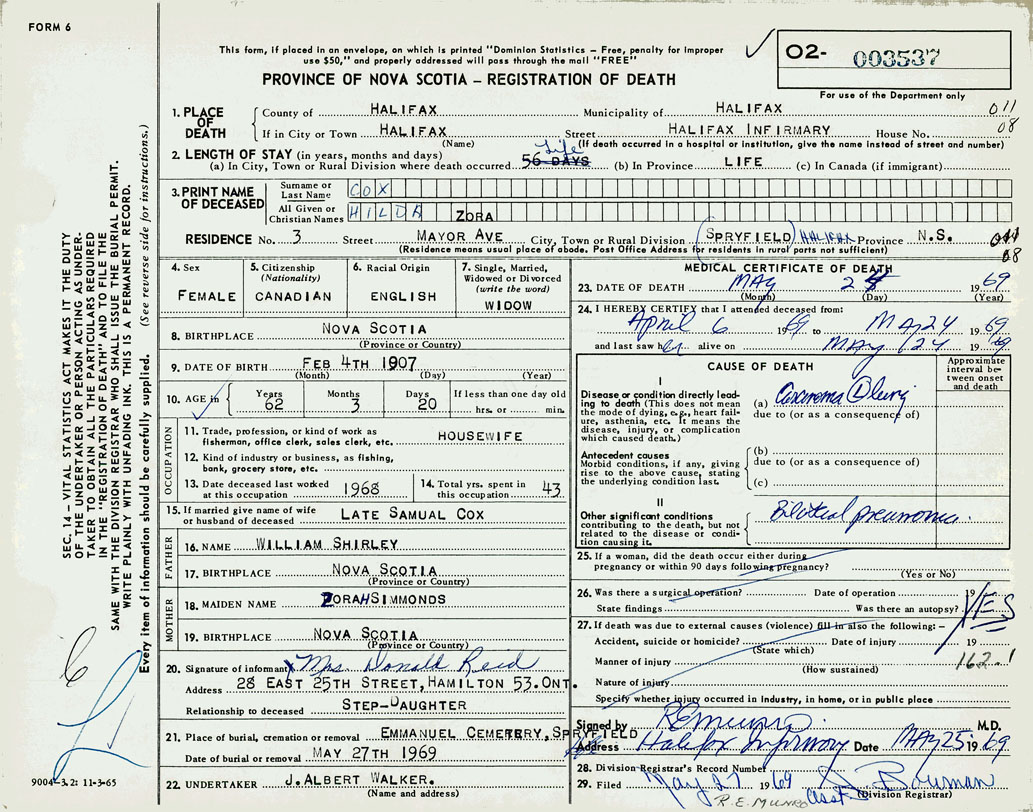 FORM 6
This form, if placed in an envelope, on which is printed "Dominion Statistics – Free, penalty for improper
use $50," and properly addressed will pass through the mail "FREE"
PROVINCE OF NOVA SCOTIA – REGISTRATION OF DEATH
O2- 003537
For use of the Department only
011
08
SEC. 14 – VITAL STATISTICS ACT MAKES IT THE DUTY
OF THE UNDERTAKER OR PERSON ACTING AS UNDER-
TAKER TO OBTAIN ALL THE PARTICULARS REQUIRED
IN THE "REGISTRATION OF DEATH" AND TO FILE THE
SAME WITH THE DIVISION REGISTRAR WHO SHALL ISSUE THE BURIAL PERMIT.
WRITE PLAINLY WITH UNFADING INK. THIS IS A PERMANENT RECORD.
Every item of information should be carefully supplied. (See reverse side for instructions.)
1. PLACE OF DEATH
County of HALIFAX Municipality of HALIFAX
If in City or Town HALIFAX Street HALIFAX INFIRMARY House No.
(Name) (If death occurred in a hospital or institution, give the name instead of street and number)
2. LENGTH OF STAY (in years, months and days)
Life
(a) In City, Town or Rural Division where death occurred 56 DAYS (b) In Province LIFE (c) In Canada (if immigrant)
3. PRINT NAME OF DECEASED
Surname or Last Name COX
All Given or Christian Names HILDA ZORA
RESIDENCE No. 3 Street MAYOR AVE City, Town or Rural Division (SPRYFIELD) HALIFAX Province N.S.
(Residence means usual place of abode. Post Office Address for residents in rural parts not sufficient)
011
08
4. Sex
FEMALE
5. Citizenship
(Nationality)
CANADIAN
6. Racial Origin
ENGLISH
7. Single, Married,
Widowed or Divorced
(write the word)
WIDOW
8. BIRTHPLACE NOVA SCOTIA
(Province or Country)
9. DATE OF BIRTH FEB 4TH 1907
(Month) (Day) (Year)
10. AGE in
Years 62 Months 3 Days 20 If less than one day old
hrs. or min.
OCCUPATION
11. Trade, profession, or kind of work as
fisherman, office clerk, sales clerk, etc. HOUSEWIFE
12. Kind of industry or business, as fishing,
bank, grocery store, etc.
13. Date deceased last worked
at this occupation 1968
14. Total yrs. spent in
this occupation 43
15. If married give name of wife
or husband of deceased LATE SAMUAL COX
FATHER
16. NAME WILLIAM SHIRLEY
17. BIRTHPLACE NOVA SCOTIA
(Province or Country)
MOTHER
18. MAIDEN NAME ZORAH SIMMONDS
19. BIRTHPLACE NOVA SCOTIA
(Province or Country)
20. Signature of informant X Mrs Donald Reid
Address 28 EAST 25TH STREET, HAMILTON 53. ONT.
Relationship to deceased STEP-DAUGHTER
21. Place of burial, cremation or removal EMMANUEL CEMETERY, SPRYFIELD
Date of burial or removal MAY 27TH 1969
22. UNDERTAKER J. ALBERT WALKER.
(Name and address)
9004-3.2: 11-3-65
MEDICAL CERTIFICATE OF DEATH
23. DATE OF DEATH MAY 24 1969
(Month) (Day) (Year)
24. I HEREBY CERTIFY that I attended deceased from:
April 6 1969 to MAY 24 1969
and last saw her alive on MAY 24 1969
CAUSE OF DEATH
Approximate
interval be-
tween onset
and death
I
Disease or condition directly lead-
ing to death (This does not mean
the mode of dying, e.g., heart fail-
ure, asthenia, etc. It means the
disease, injury, or complication
which caused death.)
(a) Carcinoma L lung
due to (or as a consequence of)
Antecedent causes
Morbid conditions, if any, giving
rise to the above cause, stating
the underlying condition last.
(b)
due to (or as a consequence of)
(c)
II
Other significant conditions
contributing to the death, but not
related to the disease or condi-
tion causing it.
Bilateral pneumonia.
25. If a woman, did the death occur either during
pregnancy or within 90 days following pregnancy?
(Yes or No)
26. Was there a surgical operation? Date of operation 19
State findings Was there an autopsy? YES
27. If death was due to external causes (violence) fill in also the following: –
Accident, suicide or homicide? Date of injury 19
(State which)
162.1
Manner of injury
(How sustained)
Nature of injury
Specify whether injury occurred in Industry, in home, or in public place
Signed by R E Munro M.D.
Address Halifax Infirmary Date MAY 25 1969
28. Division Registrar's Record Number
29. Filed May 27 1969 Bowman
Asst (Division Registrar)
R.E. MUNRO